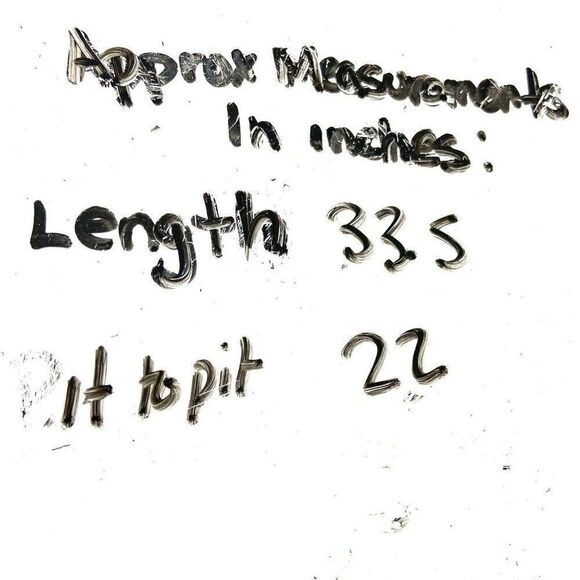 Approx Measurements
In inches:
Length 33.5
Pit to pit 22